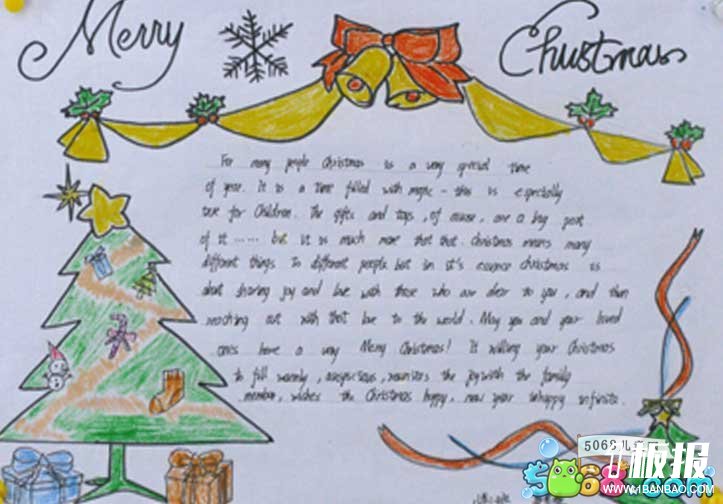 Merry
Christmas
For many people Christmas is a very special time
of year. It is a time filled with magic - this is especially
true for Children. The gifts and toys, of course, are a big part
of it ...... but it is much more that that. Christmas means many
different things to different people but in it's essence christmas is
about sharing joy and love with those who are dear to you, and then
reaching out with that love to the world. May you and your loved
ones have a very Merry Christmas! It willing your Christmas
to fill warmly, the joy with the family
member, wishes the Christmas happy, new year unhappy infinite.
5068儿
板报
WWW.1BANBAO.COM